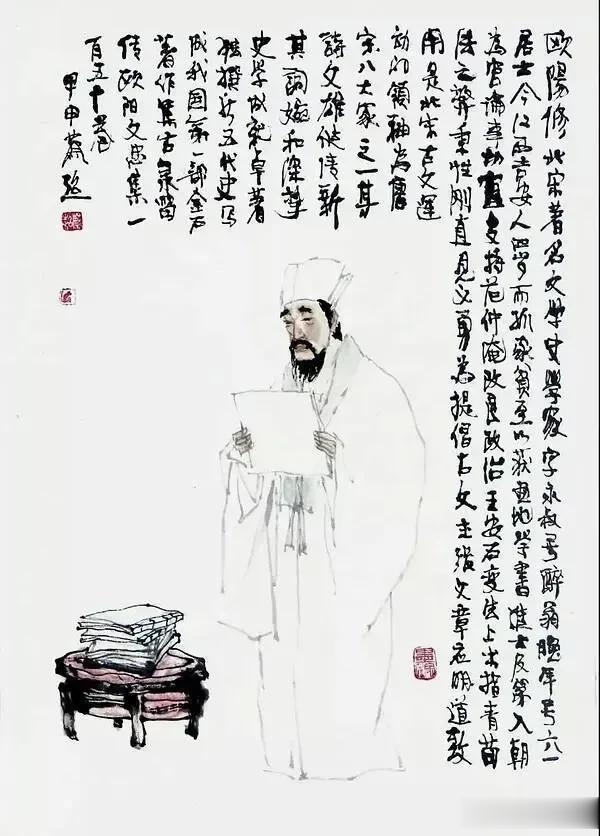 欧陽修北宋著名文學史學家字永叔号醉翁晚年号六一
居士今江西吉安人四岁而孤家貧至以荻畫地学書進士及第入朝
為官論事切直支持范仲淹改良政治王安石变法上书指青苗
法之弊秉性刚直見义勇為提倡古文主張文章应明道致
用是北宋古文運
动的領袖为唐
宋八大家之一其
詩文雄健清新
其詞婉和深
史学成就卓著
独撰新五代史写
成我国第一部金石
著作集古录留
传欧阳文忠集一
百五十卷
甲申